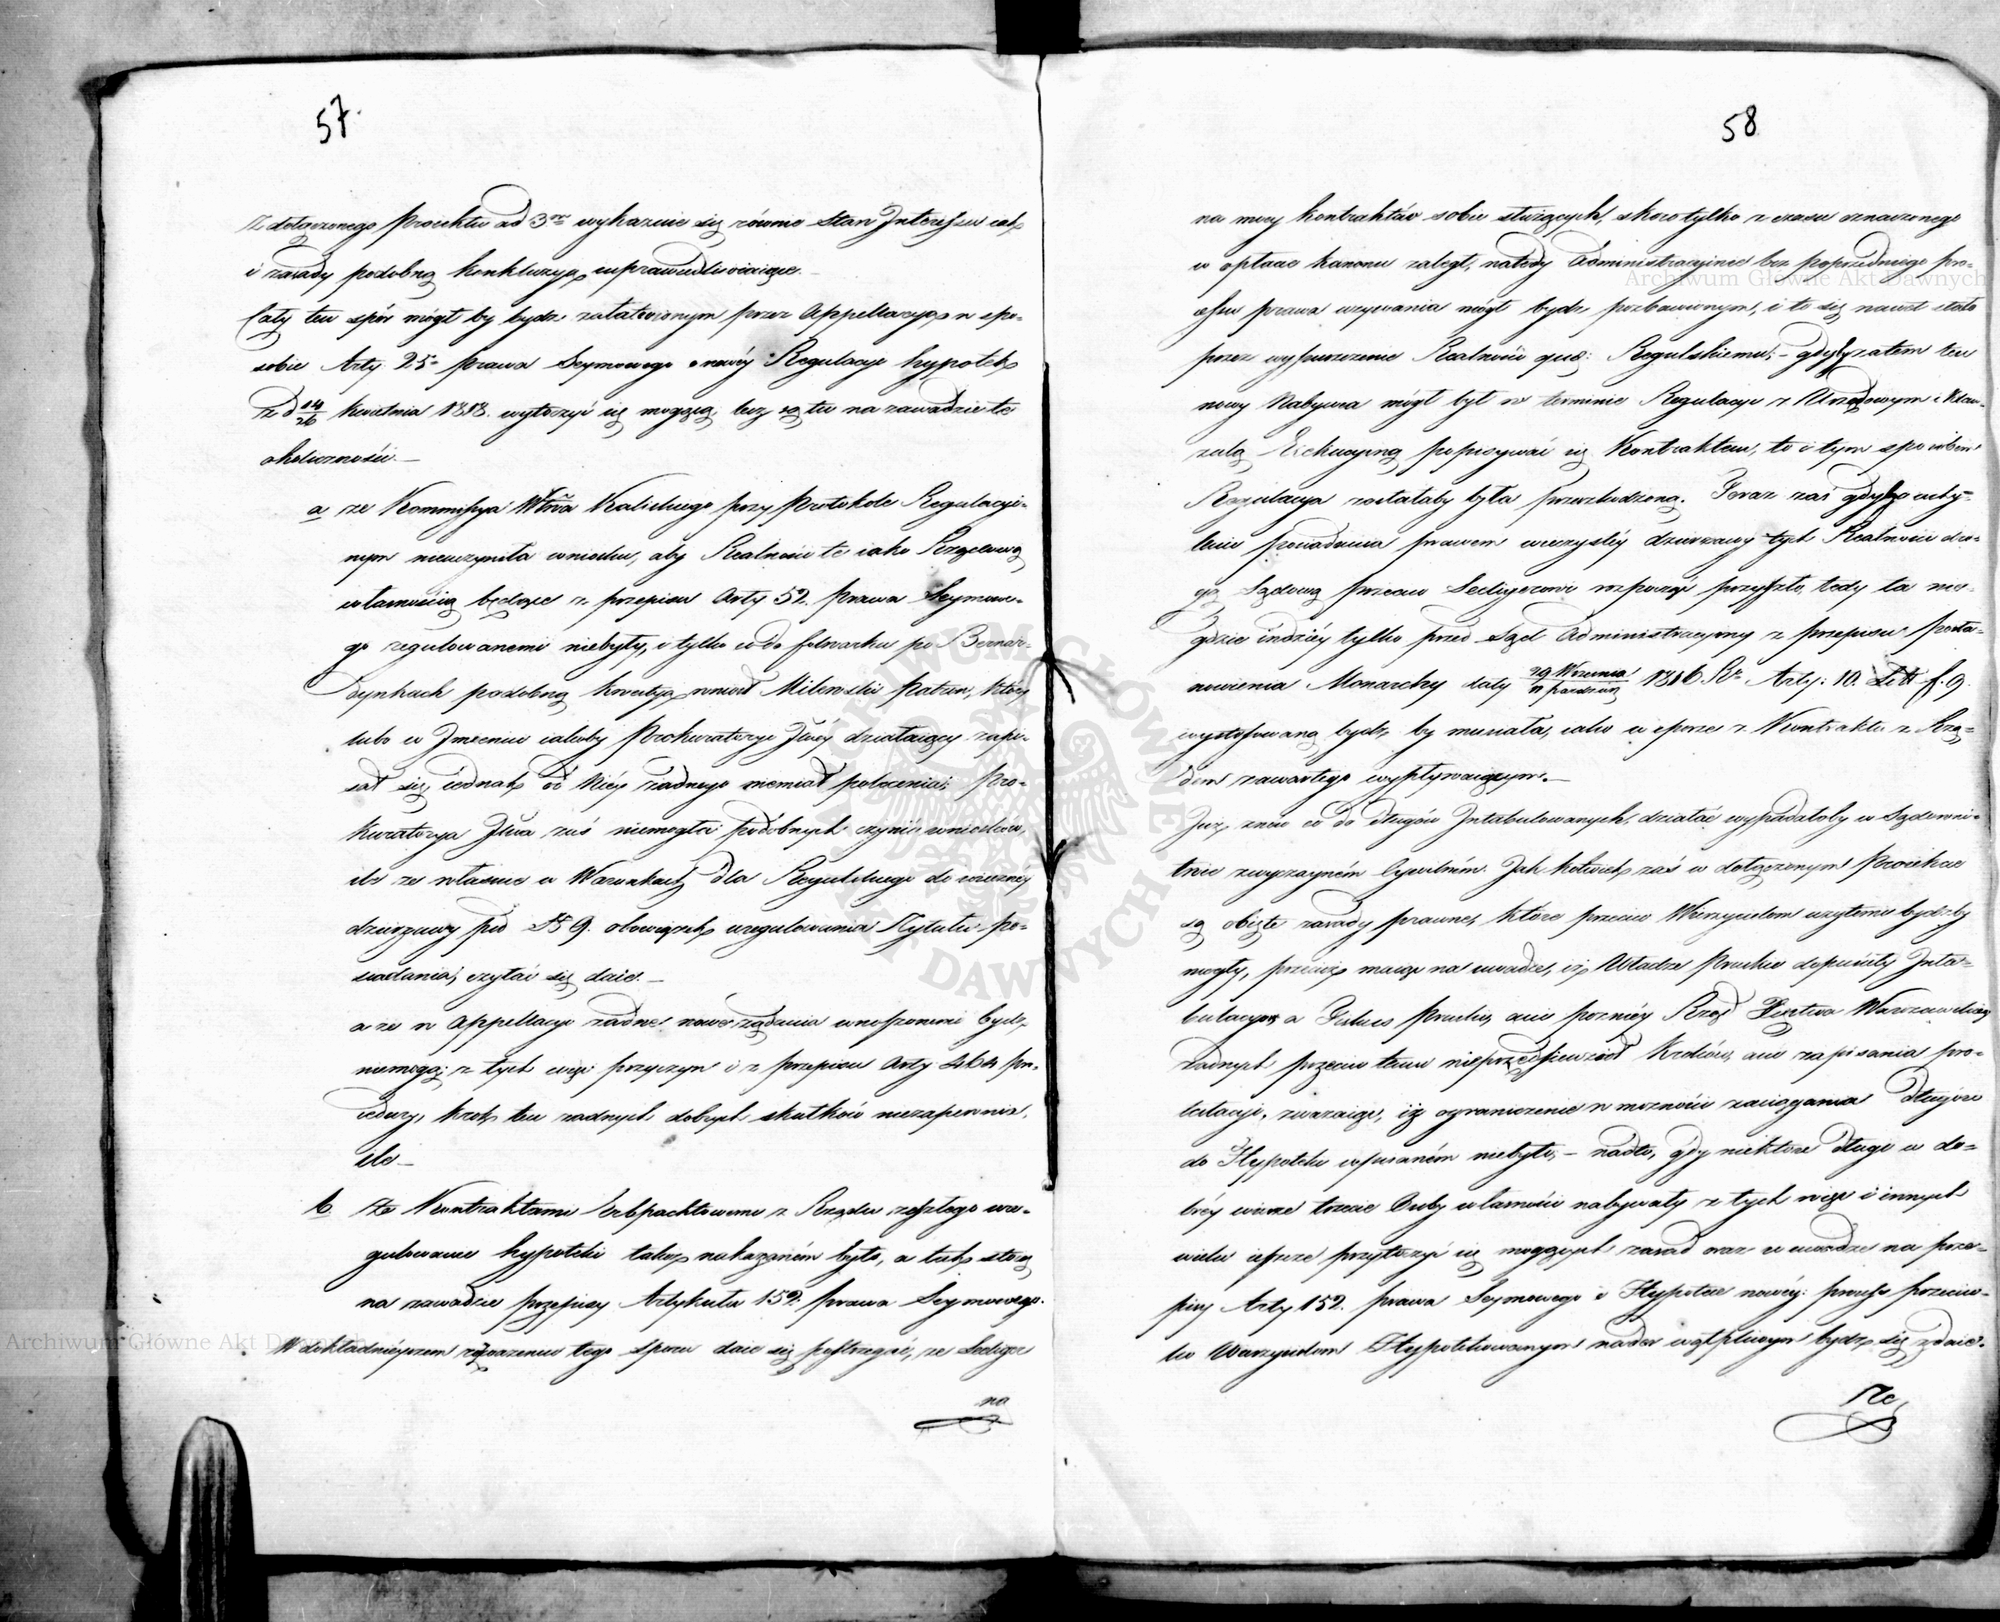 57.
Z dołączonego Proiektu ad 3um wykazuie się równie Stan Interessu cały
i zasady podobną konkluzyą usprawiedliwiaiące.
Cały ten spór mógł by bydź załatwionym przez Appellacyą w spo-
sobie Arty 25 prawa Seymowego o nowéy Regulacyi hypotek
z d 14/26 Kwietnia 1818. wytoczyć się mogącą, lecz są tu na zawadzie te
okoliczności.—
a że Kommissya Wttwa Kaliskiego przy Protokole Regulacyi-
nym nieuczyniła wniosku, aby Realności te iako Rządową
własnością będące z przepisu Arty 52. prawa Seymowe-
go regulowanemi niebyły, i tylko co do folwarku po Bernar-
dynkach podobną kwestyą wniosł Milewski Patron, który
lubo w Imieniu iakoby Prokuratoryi Jlnéy działaiący zapi-
sał się, iednak od Niéy żadnego niemiał polecenia; Pro-
kuratorya Jlna zaś niemogła podobnych czynić wniosków,
ile że właśnie w Warunkach dla Rogulskiego do wieczney
dzierżawy pod § 9. obowiązek uregulowania Tytułu po-
siadania, czytać się daie.—
a że w Appellacyi żadne nowe żądania wnoszonemi bydź
niemogą; z tych więc przyczyn i z przepisu Arty 464 pro-
cedury, krok ten żadnych dobrych skutków niezapewnia.
ile—
b że Kontraktami Erbpachtowemi z Rządu zeszłego ure-
gulowanie hypoteki także nakazaném było, a tak stoią
na zawadzie przepisy Artykułu 152. prawa Seymowego.
W dokładnieyszem rozważeniu tego sporu daie się postrzegać, że Sediger
na
58
na mocy kontraktów sobie służących, skoro tylko z czasu oznaczonego
w opłacie kanonu zaległ, natedy Administracyinie bez poprzedniego pro-
cessu prawa używania mógł bydź pozbawionym, i to się nawet stało
przez wypuszczenie Realności quae: Rogulskiemu;— gdyby zatem ten
nowy Nabywca mógł był w terminie Regulacyi z Urzędowym i Klau-
zulą Exekucyiną popisywać się Kontraktem, to i tym sposobem
Regulacya zostałaby była przeszkodzoną. Teraz zaś gdyby uchy-
lenie posiadania prawem wieczystéy dzierżawy tych Realności dro-
gą Sądową przeciw Sedigerowi rozpocząć przyszło, tedy ta nie-
gdzie indziéy tylko przed Sąd Administracyiny z przepisu Posta-
nowienia Monarchy daty 29 Września/11 paźdź: 1816 R. Arty: 10. Lit f. g.
wystosowaną bydź by musiała, iako w sporze z Kontraktu z Rzą-
dem zawartego wypływaiącym.—
Już znów co do długów Intabulowanych, działać wypadałoby w Sądowni-
ctwie zwyczayném Cywilném. Jak kolwiek zaś w dołączonym Proiekcie
są obięte zasady prawne, które przeciw Wierzycielom użytemi bydźby
mogły, przecież maiąc na uwadze, iż Władze Pruskie dopuściły Inta-
bulacyą a Fiskus Pruski, ani pozniéy Rząd Xięstwa Warszawskiego
żadnych przeciw temu nieprzedsiewzioł kroków, ani zapisania pro-
testacyi, zważaiąc, iż ograniczenie w możności zaciągania Długów
do Hypoteki wpisaném niebyło;— nadto, gdy niektóre długi w do-
bréy wierze trzecie Osoby własności nabywały z tych więc i innych
wielu ieszcze przytoczyć się mogących zasad oraz ze względu na prze-
pisy Arty 152. prawa Seymowego o Hypotece nowéy: process przeciw-
ko Wierzycielom Hypotekowanym nader wątpliwym bydź się zdaie.